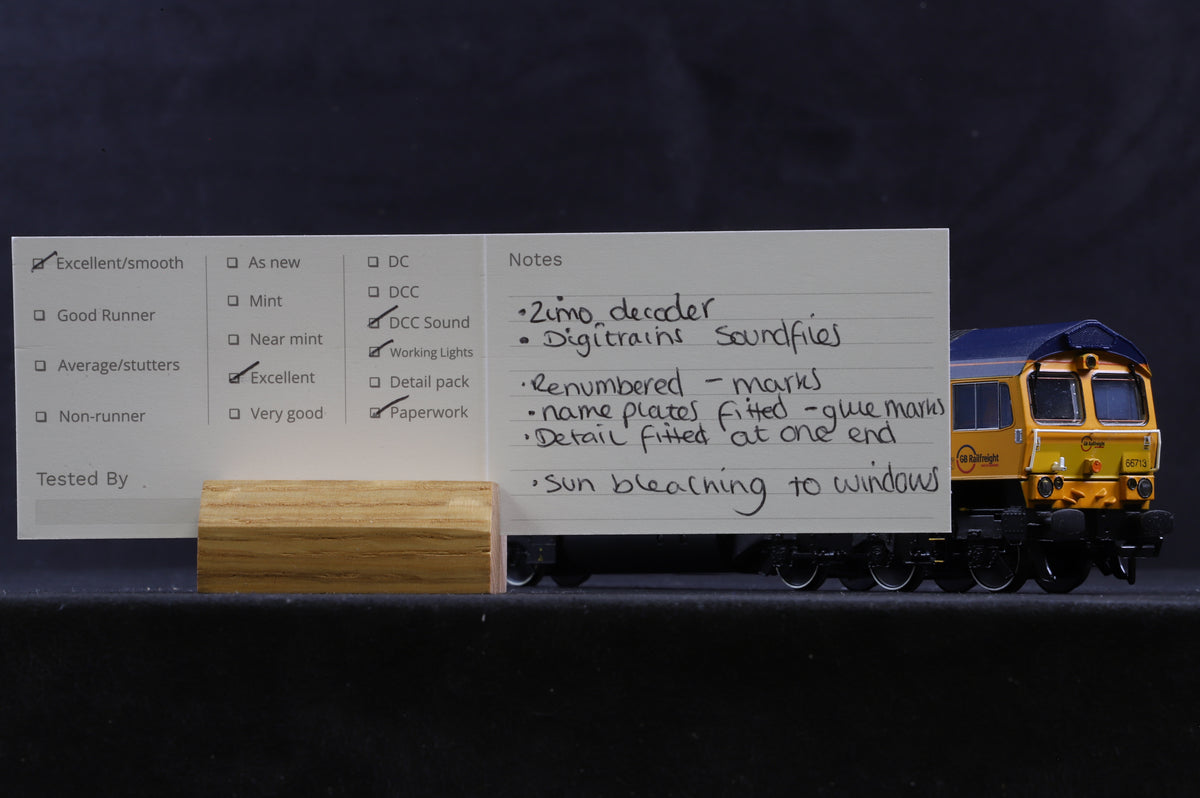 Excellent/smooth
Good Runner
Average/stutters
Non-runner
Tested By
As new
Mint
Near mint
Excellent
Very good
DC
DCC
DCC Sound
Working Lights
Detail pack
Paperwork
Notes
• Zimo decoder
• Digitrains Soundfiles
• Renumbered - marks
• name plates fitted - glue marks
• Detail fitted at one end
• Sun bleaching to windows
GB Railfreight
GB Railfreight
66713